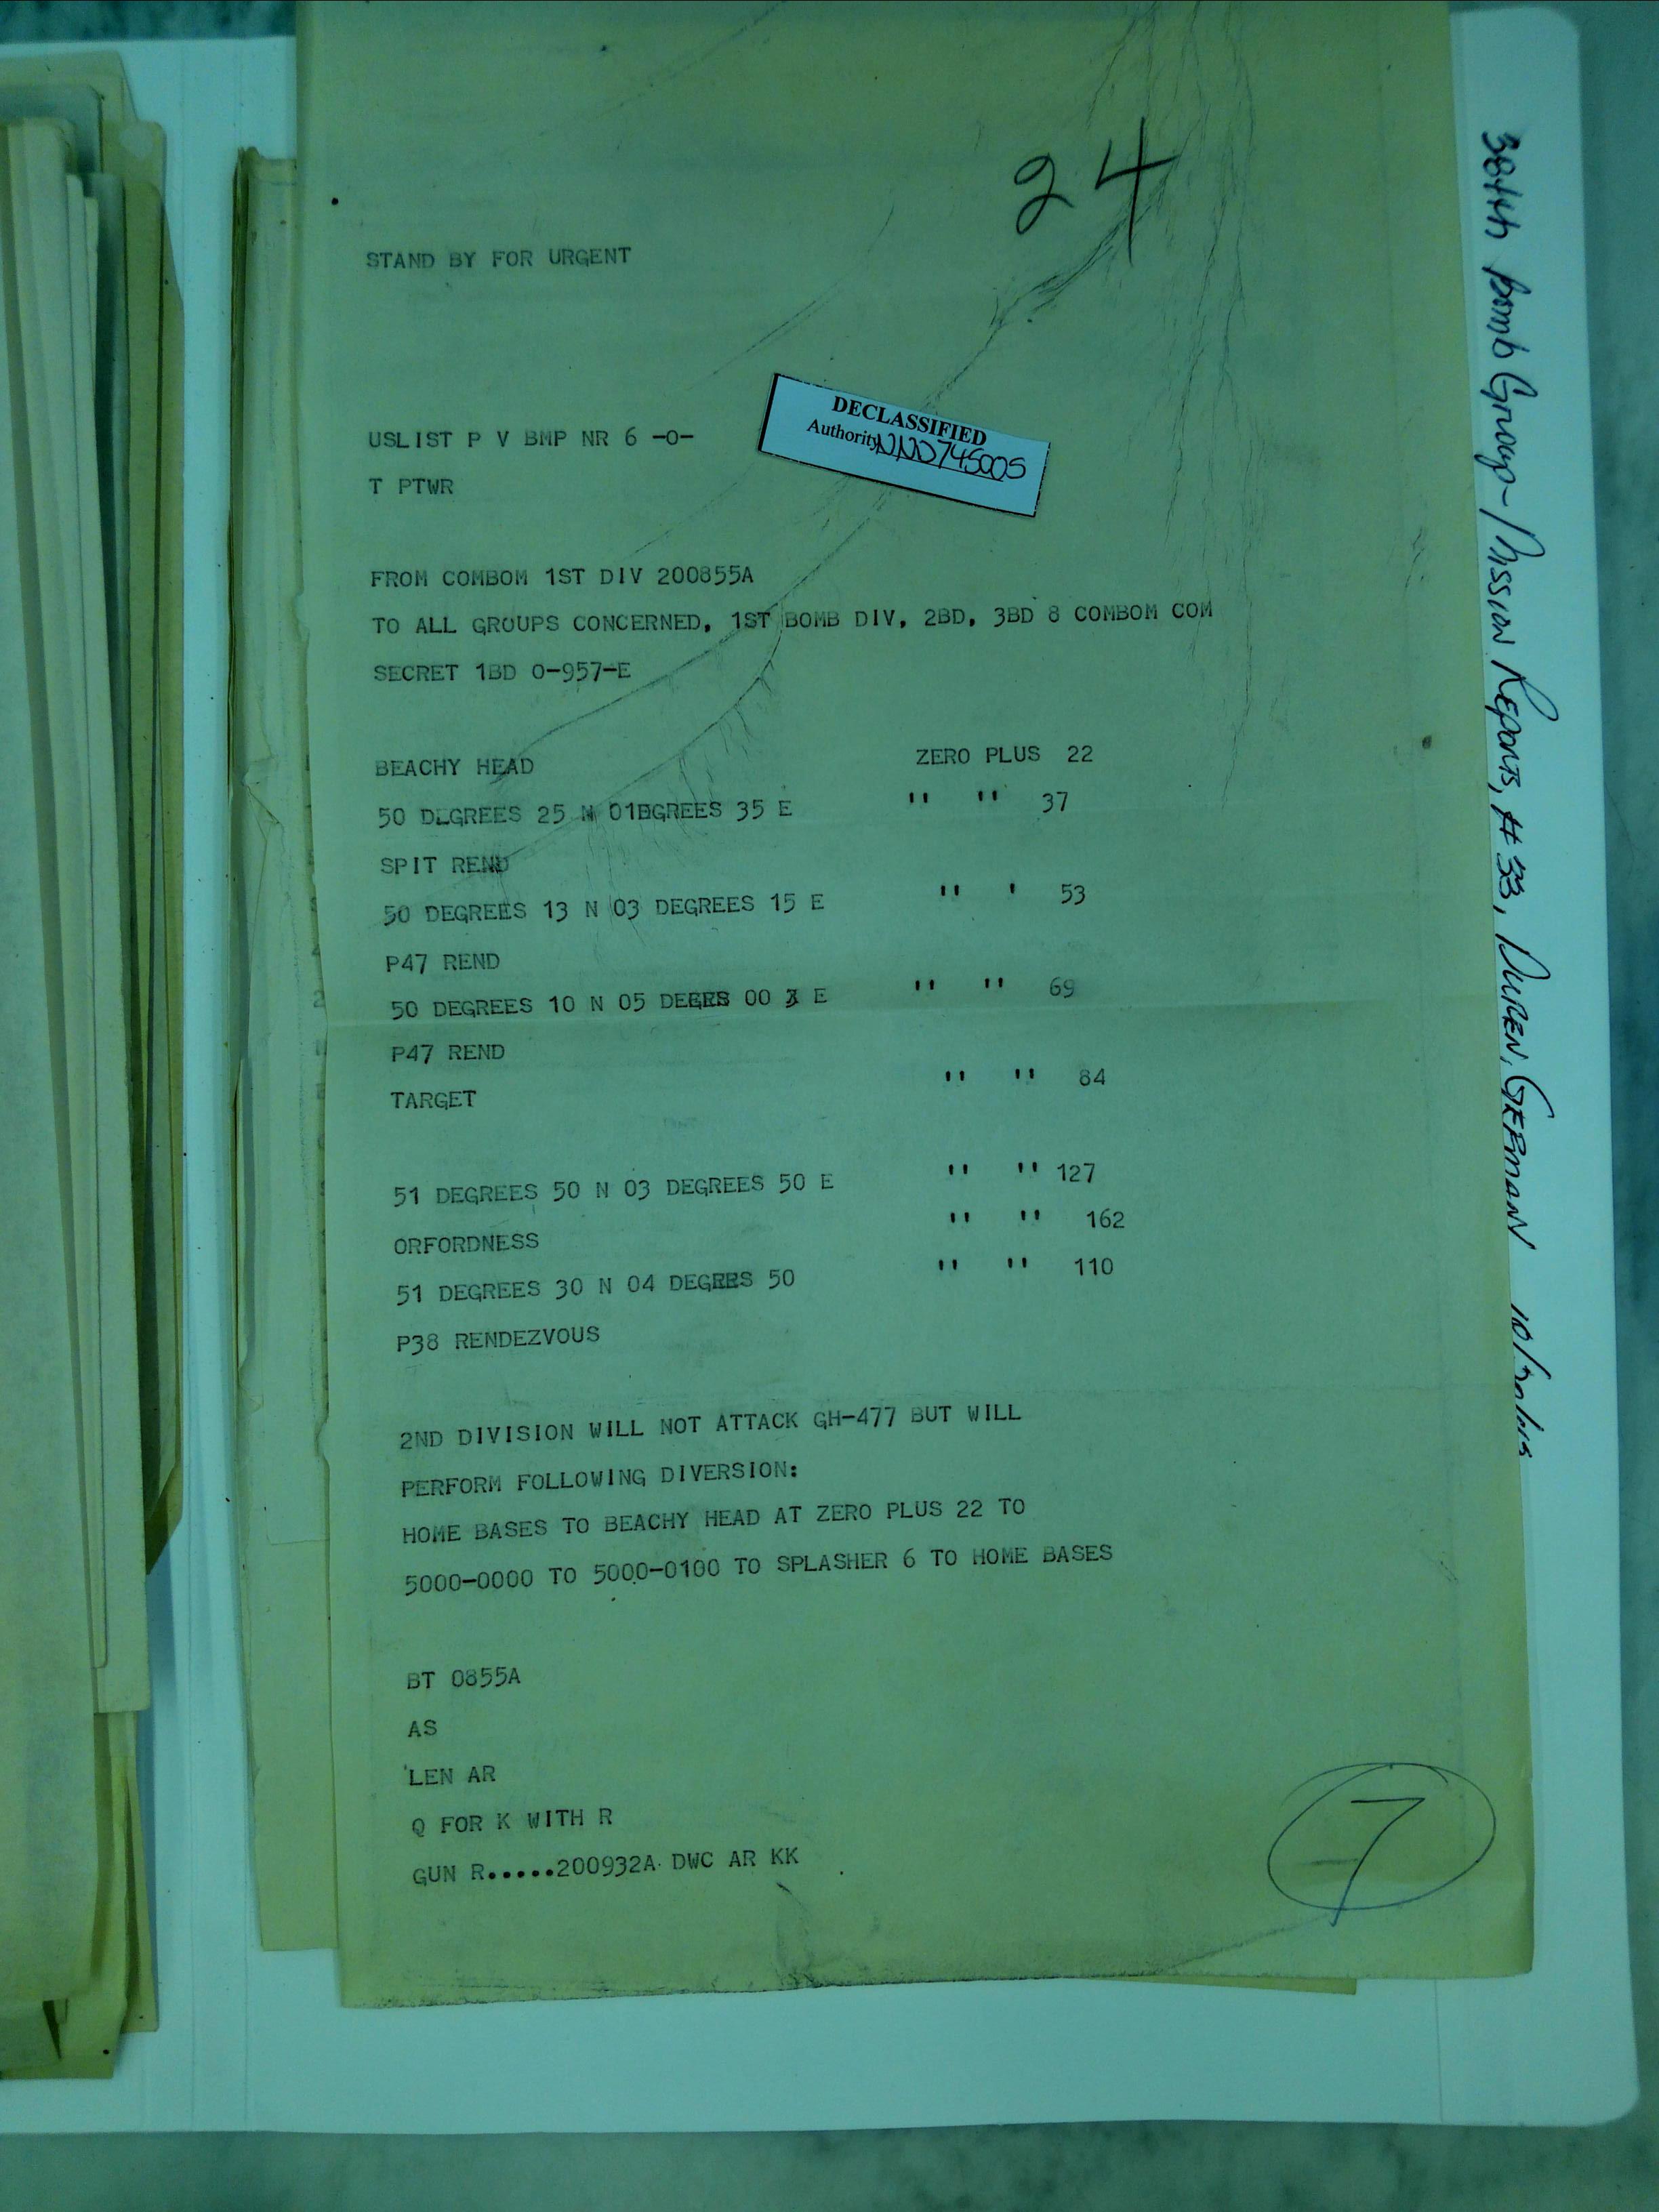 24
STAND BY FOR URGENT
DECLASSIFIED
Authority NND745005
USLIST P V BMP NR 6 -O-
T PTWR
FROM COMBOM 1ST DIV 200855A
TO ALL GROUPS CONCERNED, 1ST BOMB DIV, 2BD, 3BD 8 COMBOM COM
SECRET 1BD O-957-E
BEACHY HEAD ZERO PLUS 22
50 DEGREES 25 N 01 35 E " " 37
SPIT REND
50 DEGREES 13 N 03 DEGREES 15 E " ' 53
P47 REND
50 DEGREES 10 N 05 00 E " " 69
P47 REND
TARGET " " 84
51 DEGREES 50 N 03 DEGREES 50 E " " 127
ORFORDNESS " " 162
51 DEGREES 30 N 04 50 " " 110
P38 RENDEZVOUS
2ND DIVISION WILL NOT ATTACK GH-477 BUT WILL
PERFORM FOLLOWING DIVERSION:
HOME BASES TO BEACHY HEAD AT ZERO PLUS 22 TO
5000-0000 TO 5000-0100 TO SPLASHER 6 TO HOME BASES
BT 0855A
AS
'LEN AR
Q FOR K WITH R
GUN R.....200932A DWC AR KK
7
384th Bomb Group - Mission Reports, #33, DUREN, GERMANY